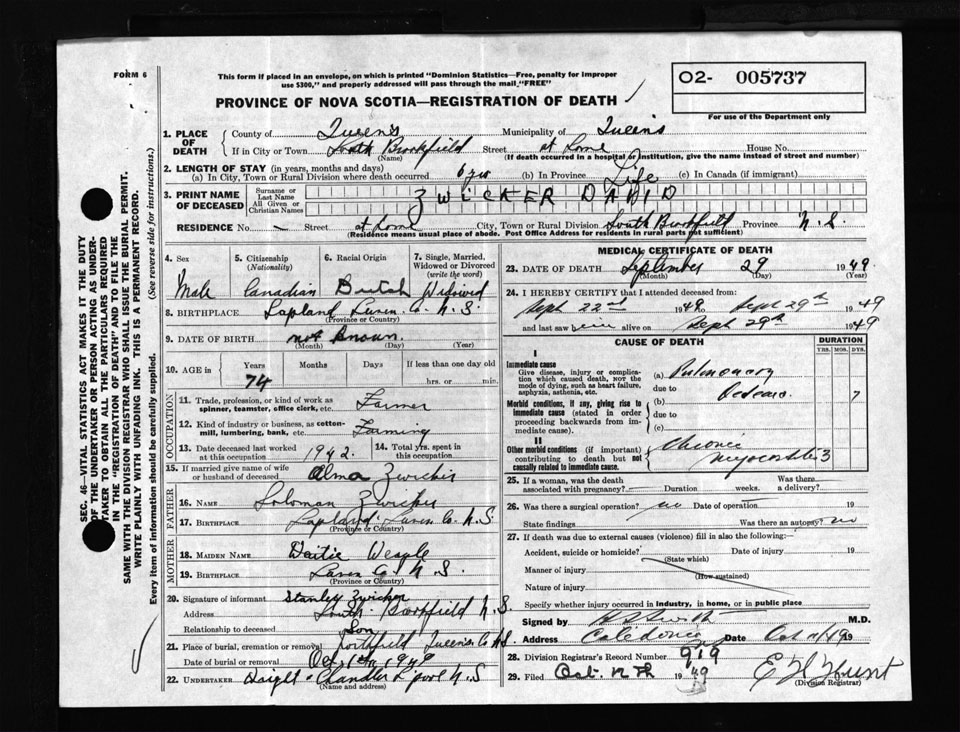 FORM 6
This form if placed in an envelope, on which is printed "Dominion Statistics—Free, penalty for improper
use $300," and properly addressed will pass through the mail "FREE"
PROVINCE OF NOVA SCOTIA—REGISTRATION OF DEATH
O2- 005737
For use of the Department only
1. PLACE OF DEATH County of Queens Municipality of Queens
If in City or Town South Brookfield Street at home House No.
(Name) (If death occurred in a hospital or institution, give the name instead of street and number)
2. LENGTH OF STAY (in years, months and days)
(a) In City, Town or Rural Division where death occurred 6 yrs (b) In Province Life (c) In Canada (if immigrant)
3. PRINT NAME OF DECEASED Surname or Last Name All Given or Christian Names ZWICKER DAVID
RESIDENCE No. — Street at home City, Town or Rural Division South Brookfield Province N.S.
(Residence means usual place of abode. Post Office Address for residents in rural parts not sufficient)
4. Sex 5. Citizenship (Nationality) 6. Racial Origin 7. Single, Married, Widowed or Divorced (write the word)
Male Canadian Dutch Widowed
8. BIRTHPLACE Lapland Lunen. Co. N.S.
(Province or Country)
9. DATE OF BIRTH not known.
(Month) (Day) (Year)
10. AGE in Years Months Days If less than one day old
74 hrs. or min.
OCCUPATION
11. Trade, profession, or kind of work as spinner, teamster, office clerk, etc. Farmer
12. Kind of industry or business, as cotton-mill, lumbering, bank, etc. Farming
13. Date deceased last worked at this occupation 1942. 14. Total yrs. spent in this occupation
15. If married give name of wife or husband of deceased Alma Zwicker
FATHER
16. NAME Soloman Zwicker
17. BIRTHPLACE Lapland Lunen Co. N.S.
(Province or Country)
MOTHER
18. MAIDEN NAME
19. BIRTHPLACE Lunen Co. N.S.
(Province or Country)
20. Signature of informant Stanley Zwicker
Address South Brookfield N.S.
Relationship to deceased Son
21. Place of burial, cremation or removal Northfield Queens Co N.S.
Date of burial or removal Oct 1st 1949
22. UNDERTAKER Chandler L'pool N.S
(Name and address)
MEDICAL CERTIFICATE OF DEATH
23. DATE OF DEATH September 29 1949.
(Month) (Day)
24. I HEREBY CERTIFY that I attended deceased from:
Sept 22nd 1949 to Sept 29th 1949
and last saw alive on Sept 29th 1949
CAUSE OF DEATH DURATION
YRS. MOS. DYS.
I
Immediate cause
Give disease, injury or complication which caused death, not the mode of dying, such as heart failure, asphyxia, asthenia, etc.
(a) Pulmonary
due to
Morbid conditions, if any, giving rise to immediate cause (stated in order proceeding backwards from immediate cause).
(b) Oedema. 7
due to
(c)
II
Other morbid conditions (if important) contributing to death but not causally related to immediate cause.
Chronic
myocarditis 3
25. If a woman, was the death associated with pregnancy? Duration weeks. Was there a delivery?
26. Was there a surgical operation? no Date of operation 19
State findings Was there an autopsy? no
27. If death was due to external causes (violence) fill in also the following:
Accident, suicide or homicide? Date of injury 19
(State which)
Manner of injury
(How sustained)
Nature of injury
Specify whether injury occurred in industry, in home, or in public place
Signed by Smith M.D.
Address Caledonia Date Oct 49
28. Division Registrar's Record Number 919
29. Filed Oct. 12th 1949 E H Hunt
(Division Registrar)
SEC. 46—VITAL STATISTICS ACT MAKES IT THE DUTY
OF THE UNDERTAKER OR PERSON ACTING AS UNDER-
TAKER TO OBTAIN ALL THE PARTICULARS REQUIRED
IN THE "REGISTRATION OF DEATH" AND TO FILE THE
SAME WITH THE DIVISION REGISTRAR WHO SHALL ISSUE THE BURIAL PERMIT.
WRITE PLAINLY WITH UNFADING INK. THIS IS A PERMANENT RECORD.
Every item of information should be carefully supplied. (See reverse side for instructions.)